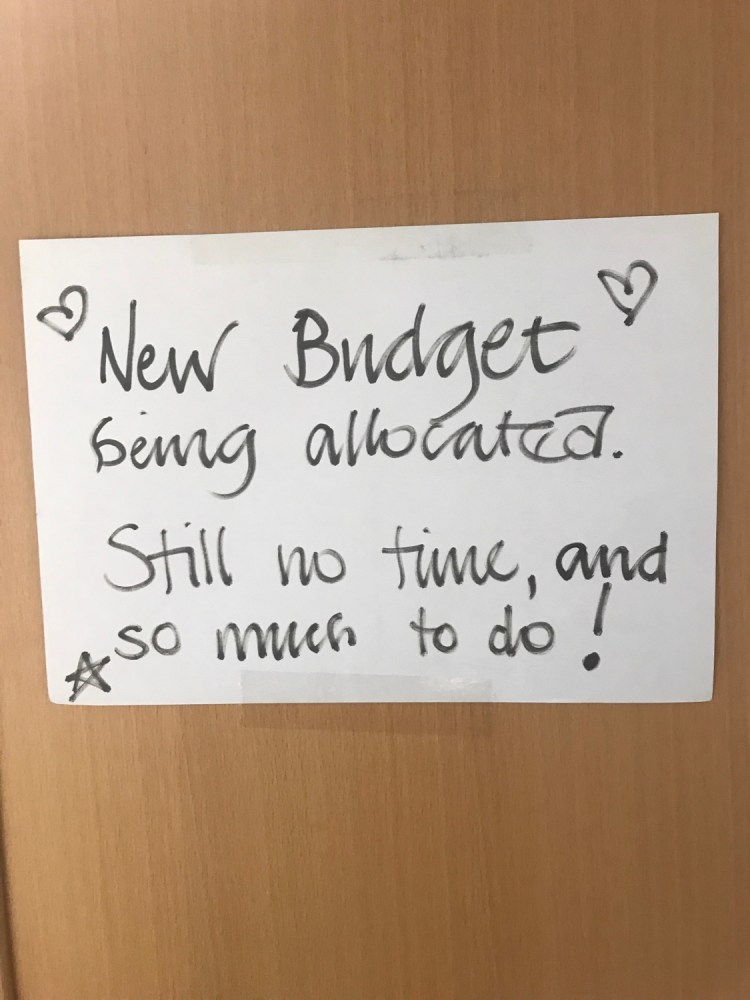 New Budget
being allocated.
Still no time, and
so much to do!